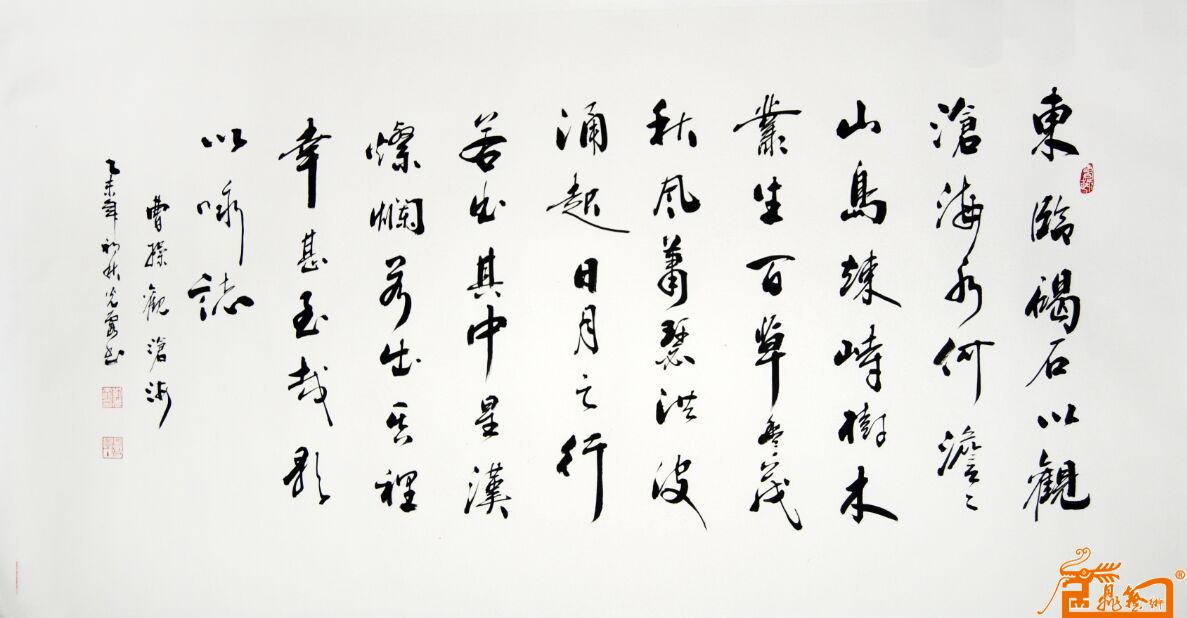 東臨碣石以觀
滄海水何澹〻
山島竦峙樹木
叢生百草豐茂
秋風蕭瑟洪波
涌起日月之行
若出其中星漢
燦爛若出其裡
幸甚至哉歌
以咏誌
曹操觀滄海
乙未年初秋